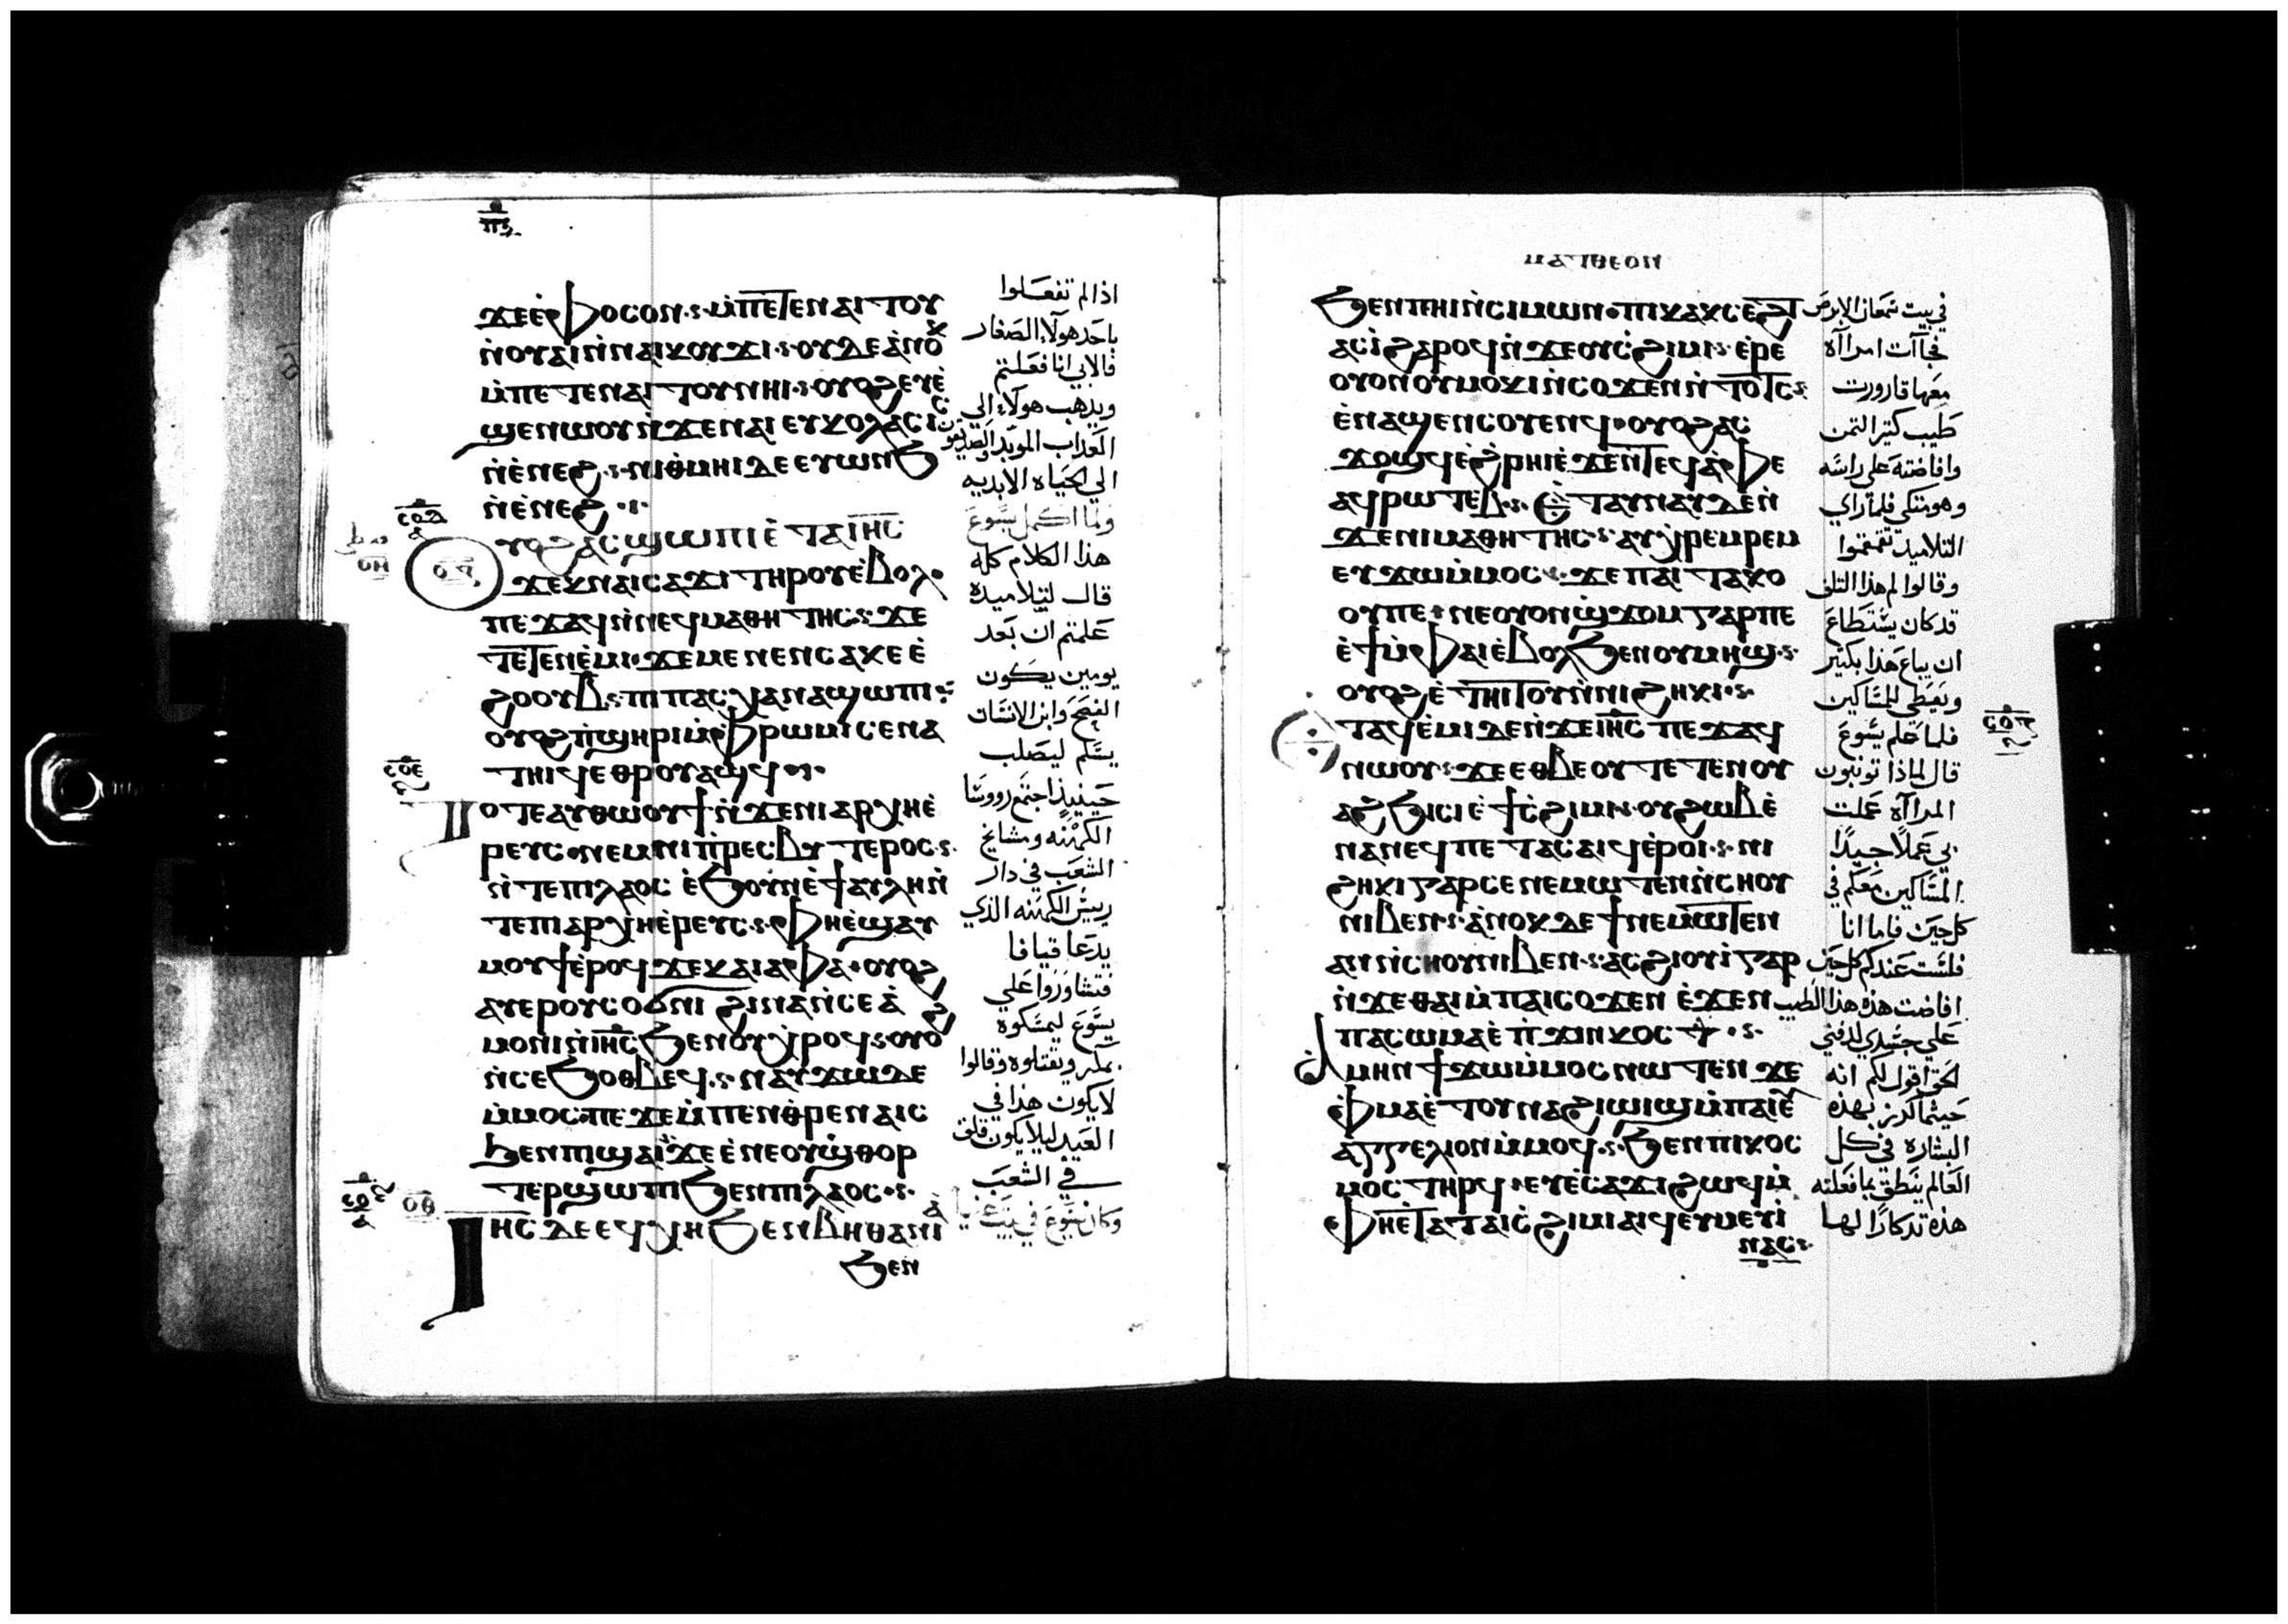 ϫⲉⲉ̀ⲫⲟⲥⲟⲛ ⲙ̀ⲡⲉⲧⲉⲛⲁⲓⲧⲟⲩ
ⲛ̀ⲟⲩⲁⲓ ⲛ̀ⲛⲁⲓⲕⲟⲩϫⲓ ⲟⲩⲇⲉ ⲁ̀ⲛⲟⲕ
ⲙ̀ⲡⲉⲧⲉⲛⲁⲓⲧⲟⲩ ⲛⲏⲓ ⲟⲩⲟϩ ⲉⲩⲉ̀
ϣⲉⲛⲱⲟⲩ ⲛ̀ϫⲉⲛⲁⲓ ⲉⲩⲕⲟⲗⲁⲥⲓⲥ
ⲛ̀ⲉ̀ⲛⲉϩ ⲛⲓⲑⲙⲏⲓ ⲇⲉ ⲉⲩⲱⲛϧ
ⲛ̀ⲉ̀ⲛⲉϩ
ⲟⲩⲟϩ ⲁⲥϣⲱⲡⲓ ⲉ̀ⲧⲁⲓⲏⲥ
ϫⲉⲕⲛⲁⲓⲥⲁϫⲓ ⲧⲏⲣⲟⲩ ⲉ̀ⲃⲟⲗ
ⲡⲉϫⲁϥ ⲛ̀ⲛⲉϥⲙⲁⲑⲏⲧⲏⲥ ϫⲉ
ⲧⲉⲧⲉⲛⲉ̀ⲙⲓ ϫⲉ ⲙⲉⲛⲉⲛⲥⲁⲕⲉⲉ̀
ϩⲟⲟⲩⲃ ⲡⲓⲡⲁⲥⲭⲁ ⲛⲁϣⲱⲡⲓ
ⲟⲩⲟϩ ⲡ̀ϣⲏⲣⲓ ⲙ̀ⲫⲣⲱⲙⲓ ⲥⲉⲛⲁ
ⲧⲏⲓϥ ⲉⲑⲣⲟⲩⲁϣϥ
Ⲧⲟⲧⲉ ⲁⲩⲑⲱⲟⲩϯ ⲛ̀ϫⲉⲛⲓⲁⲣⲭⲏⲉ̀
ⲣⲉⲩⲥ ⲛⲉⲙ ⲛⲓⲡ̀ⲣⲉⲥⲃⲩⲧⲉⲣⲟⲥ
ⲛ̀ⲧⲉⲡⲓⲗⲁⲟⲥ ⲉ̀ϧⲟⲩⲛ ⲉ̀ϯⲁⲩⲗⲏ ⲛ̀
ⲧⲉⲡⲓⲁⲣⲭⲏⲉ̀ⲣⲉⲩⲥ ⲫⲏⲉ̀ϣⲁⲩ
ⲙⲟⲩϯ ⲉ̀ⲣⲟϥ ϫⲉ ⲕⲁⲓⲁⲫⲁ ⲟⲩⲟϩ
ⲁⲩⲉⲣⲟⲩⲥⲟϭⲛⲓ ϩⲓⲛⲁ ⲛ̀ⲥⲉⲁ̀
ⲙⲟⲛⲓ ⲛ̀ⲓⲏⲥ ϧⲉⲛ ⲟⲩⲭⲣⲟϥ ⲟⲩⲟϩ
ⲛ̀ⲥⲉϧⲟⲑⲃⲉϥ ⲛⲁⲩϫⲱ ⲇⲉ
ⲙ̀ⲙⲟⲥ ⲡⲉ ϫⲉ ⲙ̀ⲡⲉⲛⲑ̀ⲣⲉⲛⲁⲓⲥ
ϧⲉⲛ ⲡϣⲁⲓ ϫⲉ ⲉ̀ⲛⲉⲟⲩϣ̀ⲑⲟⲣ
ⲧⲉⲣ ϣⲱⲡⲓ ϧⲉⲛ ⲡⲓⲗⲁⲟⲥ
Ⲓⲏⲥ ⲇⲉ ⲉϥⲭⲏ ϧⲉⲛ ⲃⲏⲑⲁⲛⲓⲁ̀
ϧⲉⲛ
اذا لم تفعلوا
باحد هولاء الصغار
فالابي انا فعلتم
ويذهب هولاء الي
العذاب الموبد والصديقون
الي الحياه الابديه
ولما اكمل يسوع
هذا الكلام كله
قال لتلاميذه
علمتم ان بعد
يومين يكون
الفصح وابن الانسان
يسلم ليصلب
حينيذ اجتمع رووسا
الكهنه ومشايخ
الشعب في دار
رييس الكهنه الذي
يدعا قيافا
فتشاوروا علي
يسوع ليمسكوه
بمكر ويقتلوه وقالوا
لا يكون هذا في
العيد ليلا يكون قلق
في الشعب
وكان يسوع في بيت عنيا
ⲙⲁⲧⲑⲉⲟⲛ
ϧⲉⲛ ⲡⲏⲓ ⲛ̀ⲥⲓⲙⲱⲛ ⲡⲓⲕⲁⲕⲥⲉϩⲧ
ⲁⲥⲓ̀ ϩⲁⲣⲟϥ ⲛ̀ϫⲉⲟⲩⲥ̀ϩⲓⲙⲓ ⲉ̀ⲣⲉ
ⲟⲩⲟⲛ ⲟⲩⲙⲟⲕⲓ ⲛ̀ⲥⲟϫⲉⲛ ⲛ̀ⲧⲟⲧⲥ
ⲉ̀ⲛⲁϣⲉⲛⲥⲟⲩⲉⲛϥ ⲟⲩⲟϩ ⲁⲥ
ϫⲟϣϥ ⲉ̀ϩ̀ⲣⲏⲓ ⲉ̀ϫⲉⲛ ⲧⲉϥⲁ̀ⲫⲉ
ⲁϥⲣⲱⲧⲉⲃ ⲉ̀ⲧⲁⲩⲛⲁⲩ ⲇⲉ ⲛ̀
ϫⲉⲛⲓⲙⲁⲑⲏⲧⲏⲥ ⲁⲩⲭⲣⲉⲙⲣⲉⲙ
ⲉⲩϫⲱ ⲙ̀ⲙⲟⲥ ϫⲉ ⲡⲁⲓⲧⲁⲕⲟ
ⲟⲩ ⲡⲉ ⲛⲉⲟⲩⲟⲛϣ̀ϫⲟⲙ ⲅⲁⲣ ⲡⲉ
ⲉ̀ϯ ⲙ̀ⲫⲁⲓ ⲉ̀ⲃⲟⲗ ϧⲉⲛ ⲟⲩⲙⲏϣ
ⲟⲩⲟϩ ⲉ̀ⲧⲏⲓⲧⲟⲩ ⲛ̀ⲛⲓϩⲏⲕⲓ
ⲉⲧⲁϥⲉ̀ⲙⲓ ⲇⲉ ⲛ̀ϫⲉⲓⲏⲥ ⲡⲉϫⲁϥ
ⲛⲱⲟⲩ ϫⲉ ⲉⲑⲃⲉⲟⲩ ⲧⲉⲧⲉⲛⲟⲩ
ⲁϩϧⲓⲥⲓ ⲉ̀ϯⲥ̀ϩⲓⲙⲓ ⲟⲩϩⲱⲃ ⲉ̀
ⲛⲁⲛⲉϥ ⲡⲉⲧⲁⲥⲁⲓϥ ⲉ̀ⲣⲟⲓ ⲛⲓ
ϩⲏⲕⲓ ⲅⲁⲣ ⲥⲉⲛⲉⲙⲱⲧⲉⲛ ⲛ̀ⲥⲏⲟⲩ
ⲛⲓⲃⲉⲛ ⲁ̀ⲛⲟⲕ ⲇⲉ ϯⲛⲉⲙⲱⲧⲉⲛ
ⲁⲛ ⲛ̀ⲥⲏⲟⲩ ⲛⲓⲃⲉⲛ ⲁⲥϩⲓⲟⲩⲓ ⲅⲁⲣ
ⲛ̀ϫⲉⲑⲁⲓ ⲙ̀ⲡⲁⲓⲥⲟϫⲉⲛ ⲉ̀ϫⲉⲛ
ⲡⲁⲥⲱⲙⲁ ⲉ̀ⲡ̀ϫⲓⲛⲕⲟⲥⲧ
Ⲁⲙⲏⲛ ϯϫⲱ ⲙ̀ⲙⲟⲥ ⲛⲱⲧⲉⲛ ϫⲉ
ⲫⲙⲁ ⲉ̀ⲧⲟⲩⲛⲁϩⲓⲱⲓϣ ⲙ̀ⲡⲁⲓⲉⲩ
ⲁⲅⲅⲉⲗⲓⲟⲛ ⲙ̀ⲙⲟϥ ϧⲉⲛ ⲡⲓⲕⲟⲥ
ⲙⲟⲥ ⲧⲏⲣϥ ⲉⲩⲉ̀ⲥⲁϫⲓ ϩⲱϥ ⲙ̀
ⲫⲏⲉ̀ⲧⲁ ⲧⲁⲓⲥ̀ϩⲓⲙⲓ ⲁⲓϥ ⲉⲩⲙⲉⲩⲓ̀
ⲛⲁⲥ
في بيت شمعان الابرص
فجاات امرااه
معها قارورت
طيب كتير التمن
وافاضته علي راسه
وهو متكي فلما راي
التلاميذ تقمقموا
وقالوا لم هذا التلف
قد كان يستطاع
ان يباع هذا بكتير
ويعطي للمساكين
فلما علم يسوع
قال لماذا تونبون
المرااه عملت
بي عملا جيدا
المساكين معكم في
كل حين فاما انا
فلست عندكم كل حين
افاضت هذه هذا الطيب
علي جسدي لدفني
الحق اقول لكم انه
حيثما كرز بهذه
البشاره في كل
العالم ينطق بما فعلته
هذه تذكارا لها